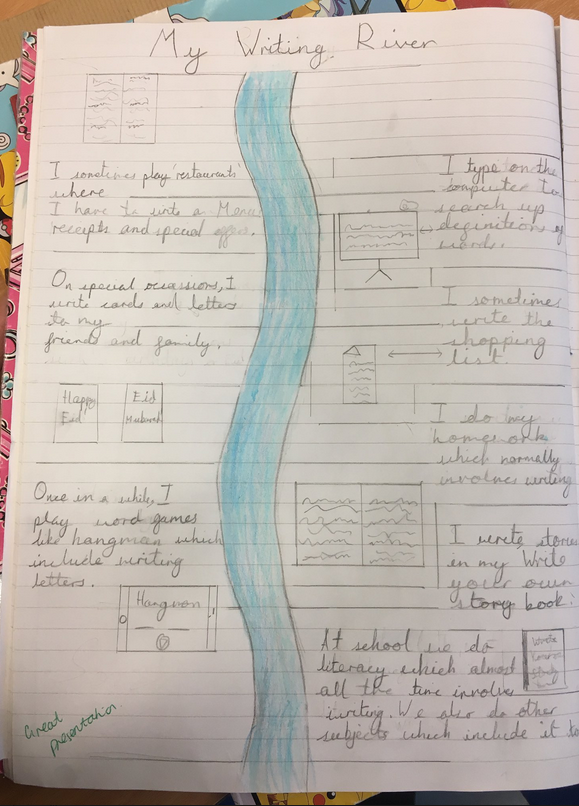 My Writing River
I sometimes play 'restaurants'
where
I have to write a Menu
receipts and special offers.
On special occassions, I
write cards and letters
to my
friends and family.
Happy
Eid
Eid
Mubarak
Once in a while, I
play word games
like hangman which
include writing
letters.
Hangman
Great
presentation.
I type on the
computer to
search up
definitions of
words.
I sometimes
write the
shopping
list.
I do my
homework
which normally
involves writing
I write stories
in my Write
your own
story book.
At school we do
literacy which almost
all the time involve
writing. We also do other
subjects which include it too